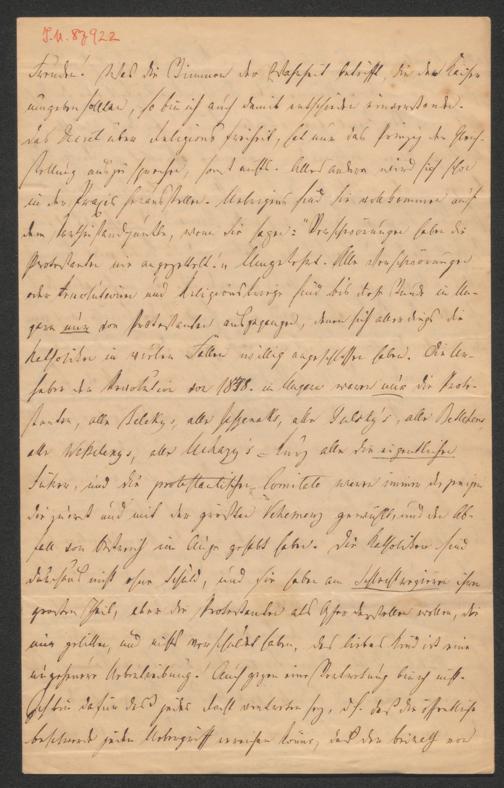 I.N. 87922
Freunde! Was die Stimmen der Wahrheit betrifft, die den Kaiser
umgeben sollen, so bin ich auch damit entschieden einverstanden.
Das Decret über Religionsfreiheit, hat nur das Prinzip der Gleich-
stellung auszusprechen, sonst nichts. Alles andere wird sich schon
in der Praxis herausstellen. Uebrigens sind Sie vollkommen auf
dem Parteistandpunkte, wenn Sie sagen: "Verschwörungen haben die
Protestanten nie angezettelt" Umgekehrt. Alle Verschwörungen
oder Revolutionen und Religionskriege sind bis diese Stunde in Un-
garn nur von Protestanten ausgegangen, denen sich allerdings die
Katholiken in vielen Fällen willig angeschlossen haben. Die Ur-
heber der Revolution von 1848. in Ungarn waren nur die Prote-
stanten, alle Teleky's, alle alle Pulsky's, alle Bethlens,
alle Wesselenys, alle – kurz alle die eigentlichen
Führer, und die protestantischen Comitate waren immer diejenigen
die zuerst und mit der größten Vehemenz gewühlt, und den Ab-
fall von Österreich im Auge gehabt haben. Die Katholiken sind
durchaus nicht ohne Schuld, und sie haben am Schlechtregieren ihren
großen Theil, aber die Protestanten als Opfer darstellen wollen, die
nur gelitten, und nichts verschuldet haben, das liebes Kind ist eine
ungeheuere Uebertreibung! Auch gegen eine Vertretung bin ich nicht.
Ich bin dafür daß jedes Land vertreten sey, d.h. daß die öffentliche
Beschwerde jeden Uebergriff erreichen könne, daß der von